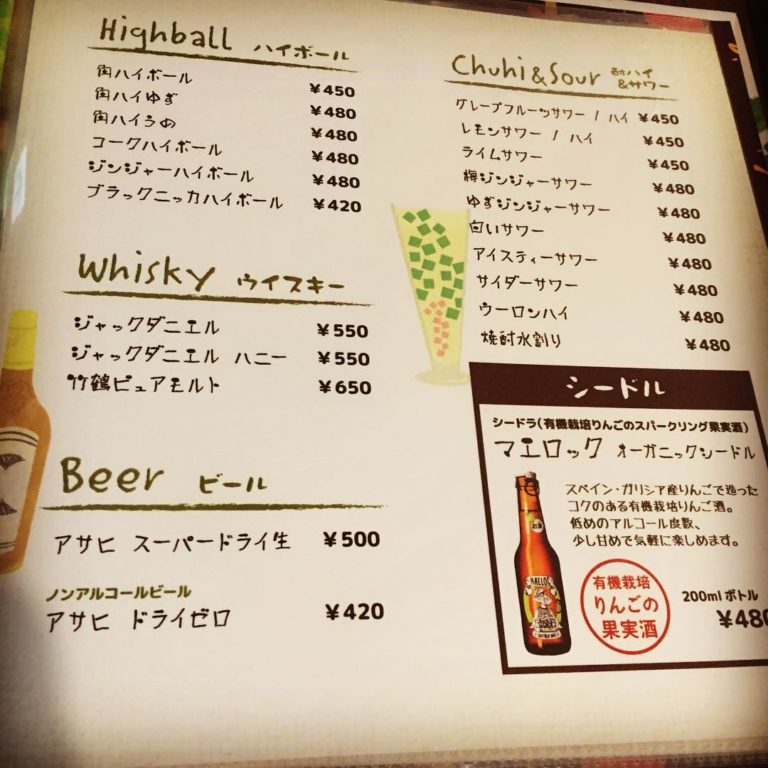 Highball ハイボール
角ハイボール ¥450
角ハイゆず ¥480
角ハイうめ ¥480
コークハイボール ¥480
ジンジャーハイボール ¥480
ブラックニッカハイボール ¥420
Whisky ウイスキー
ジャックダニエル ¥550
ジャックダニエル ハニー ¥550
竹鶴ピュアモルト ¥650
Beer ビール
アサヒ スーパードライ生 ¥500
ノンアルコールビール
アサヒ ドライゼロ ¥420
Chuhi&Sour 酎ハイ&サワー
グレープフルーツサワー / ハイ ¥450
レモンサワー / ハイ ¥450
ライムサワー ¥450
梅ジンジャーサワー ¥480
ゆずジンジャーサワー ¥480
白いサワー ¥480
アイスティーサワー ¥480
サイダーサワー ¥480
ウーロンハイ ¥480
焼酎水割り ¥480
シードル
シードラ(有機栽培りんごのスパークリング果実酒)
マエロック オーガニックシードル
スペイン・ガリシア産りんごで造った
コクのある有機栽培りんご酒。
低めのアルコール度数、
少し甘めで気軽に楽しめます。
MAELOC
有機栽培
りんごの
果実酒
200ml ボトル
¥480